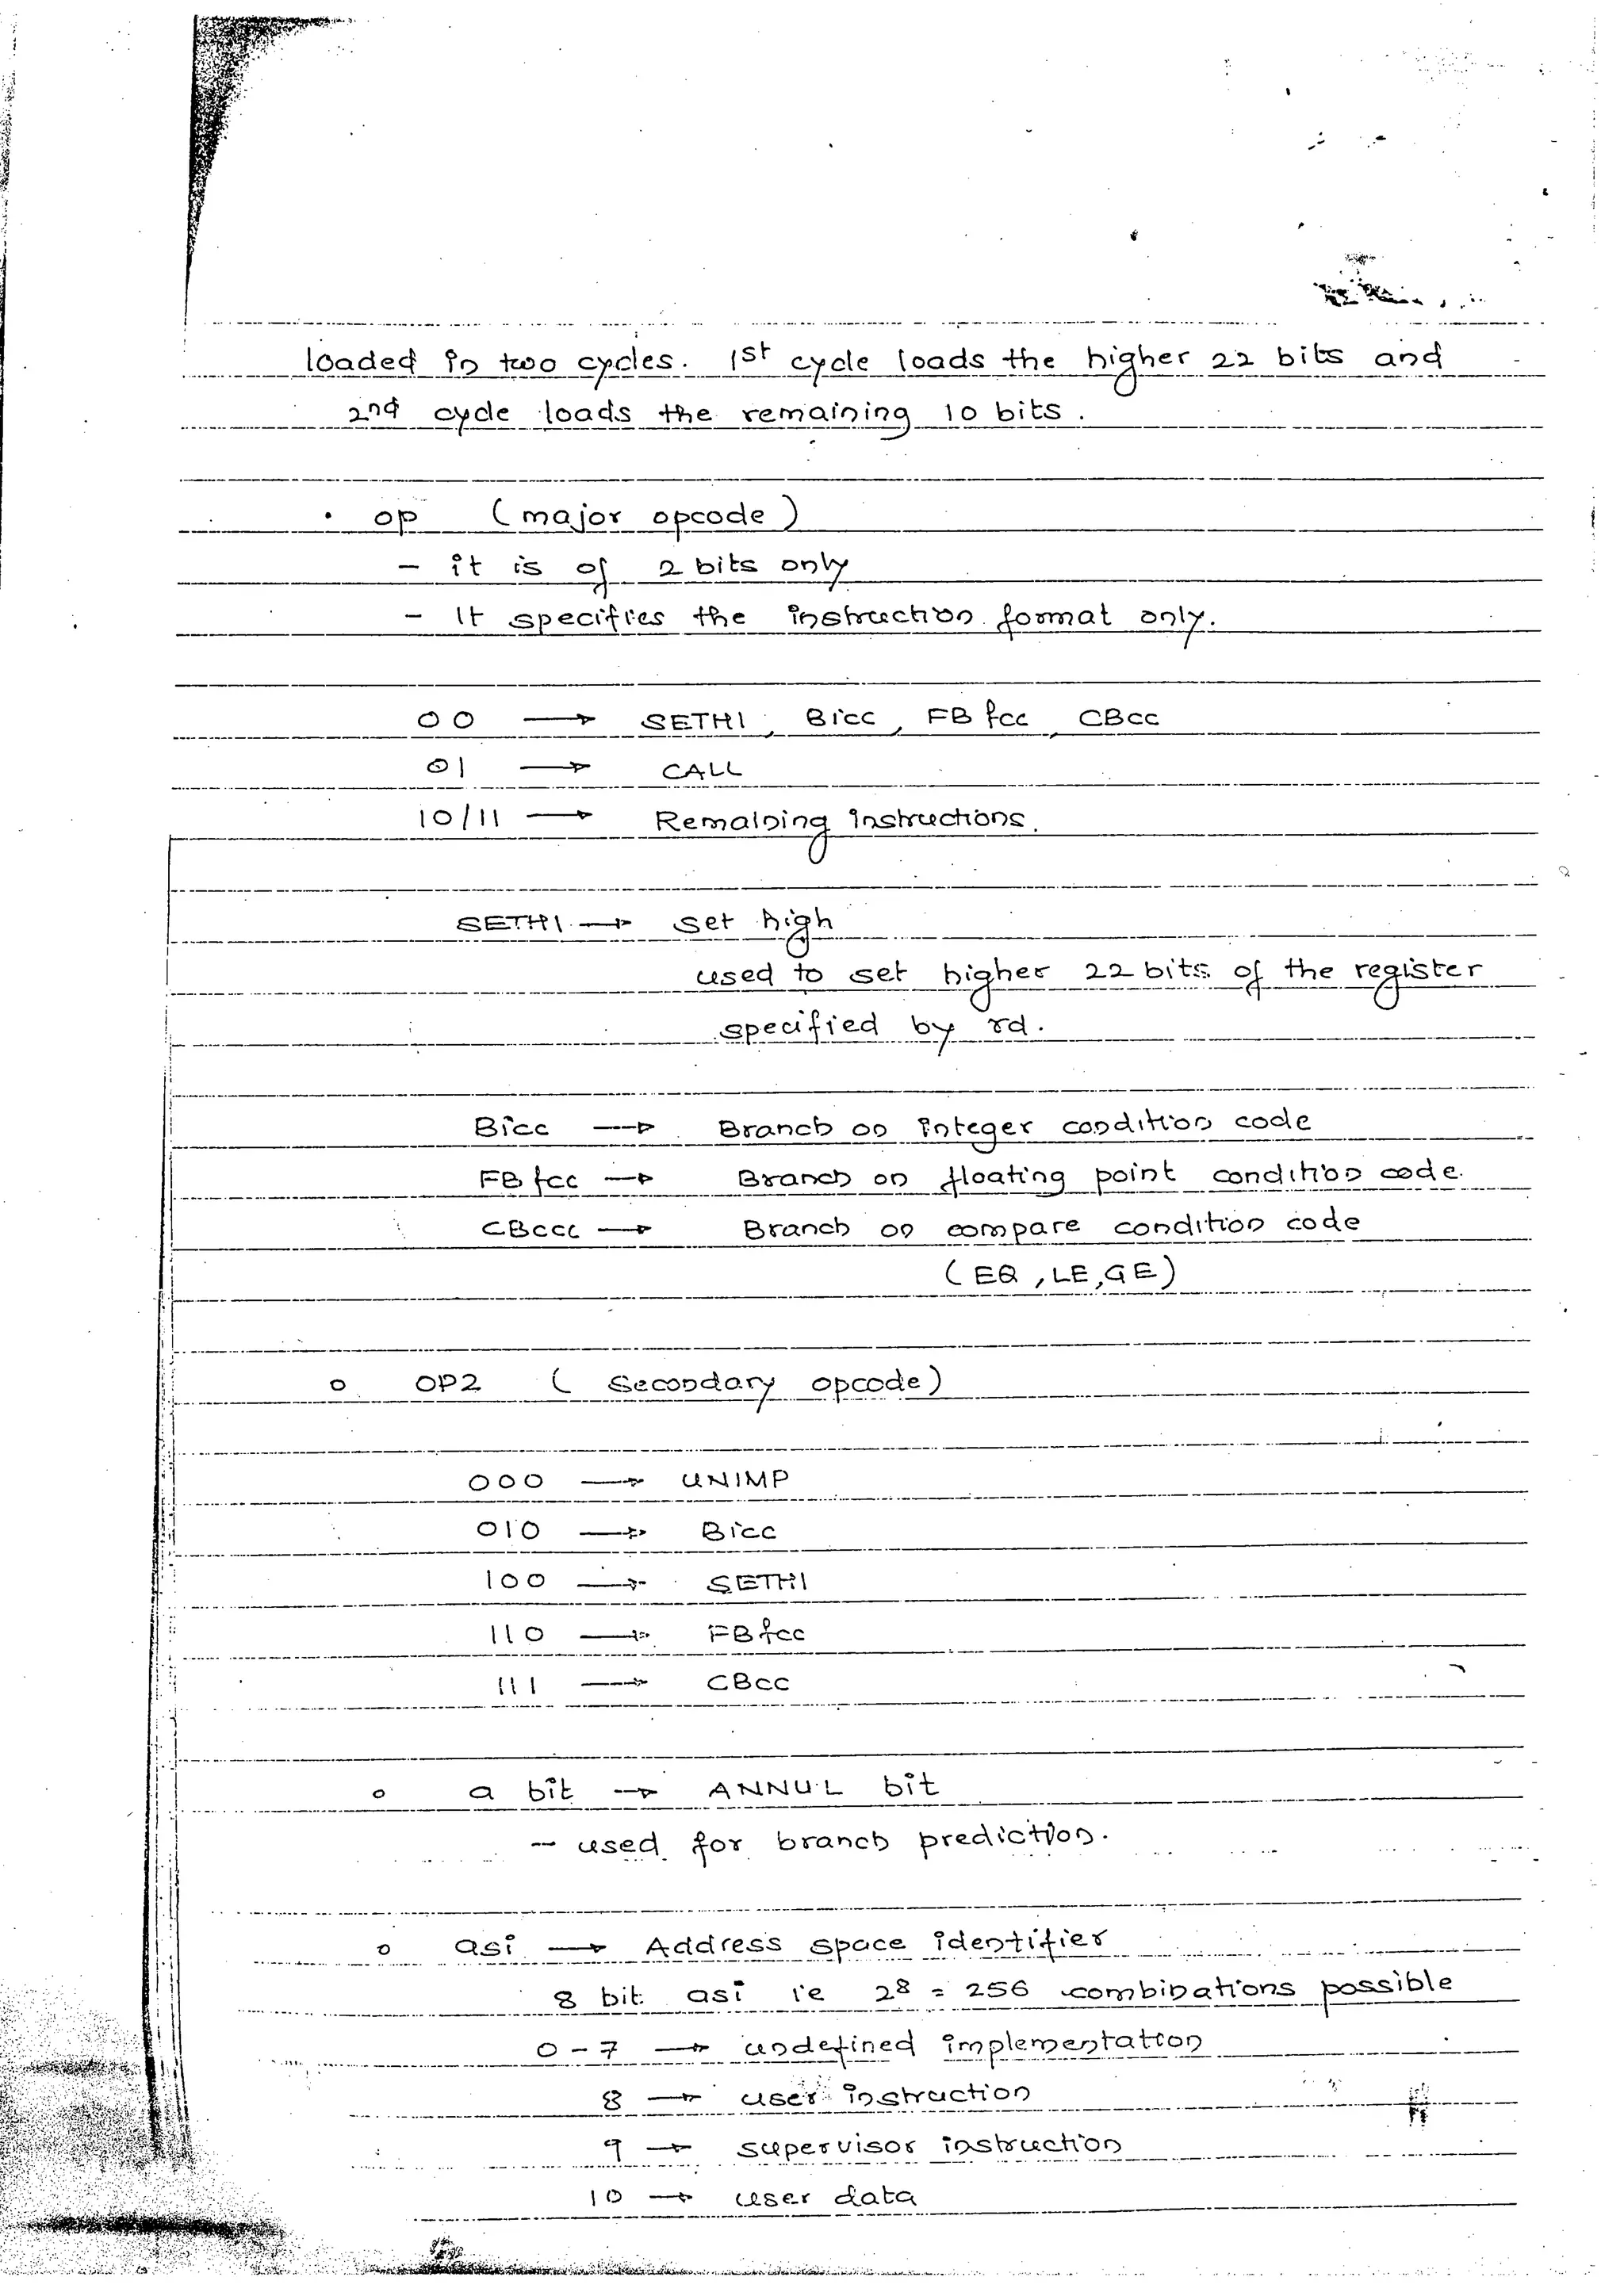 loaded in two cycles. 1st cycle loads the higher 22 bits and
2nd cycle loads the remaining 10 bits.
• op (major opcode)
- it is of 2 bits only
- It specifies the instruction format only.
00 → SETHI, Bicc, FBfcc, CBcc
01 → CALL
10/11 → Remaining instructions.
SETHI → set high
used to set higher 22 bits of the register
specified by rd.
Bicc → Branch on integer condition code
FBfcc → Branch on floating point condition code.
CBccc → Branch on compare condition code
(EQ, LE, GE)
o OP2 (secondary opcode)
000 → UNIMP
010 → Bicc
100 → SETHI
110 → FBfcc
111 → CBcc
o a bit → ANNUL bit
- used for branch prediction.
o asi → Address space identifier
8 bit asi ie 2⁸ = 256 combinations possible
0 - 7 → undefined implementation
8 → user instruction
9 → supervisor instruction
10 → user data